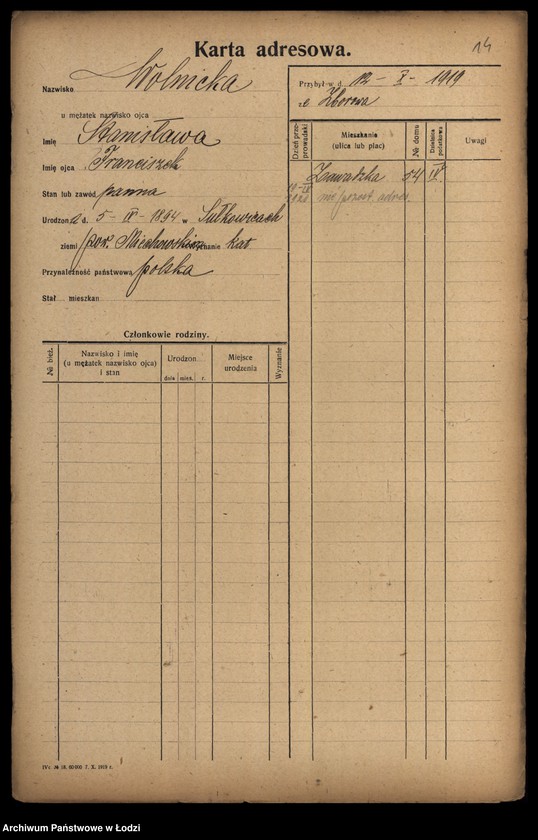 Karta adresowa.
14
Nazwisko Wolnicka
u mężatek nazwisko ojca
Imię Stanisława
Imię ojca Franciszek
Stan lub zawód panna
Urodzona d. 5 - IV - 1894 w Sułkowicach
ziemi pow. Miechowskim wyznanie kat
Przynależność państwowa polska
Stał. mieszkan.
Przybył w d. 12 - X - 1919
z Zborowa
Dzień przeprowadzki
Mieszkania (ulica lub plac)
№ domu
Dzielnica podatkowa
Uwagi
Zawadzka 54 IV
1920 adres.
Członkowie rodziny.
№ bież.
Nazwisko i imię (u mężatek nazwisko ojca) i stan
Urodzon.
dnia mies. r.
Miejsce urodzenia
Wyznanie
IVc. № 18. 60600 7. X. 1919 r.
Archiwum Państwowe w Łodzi